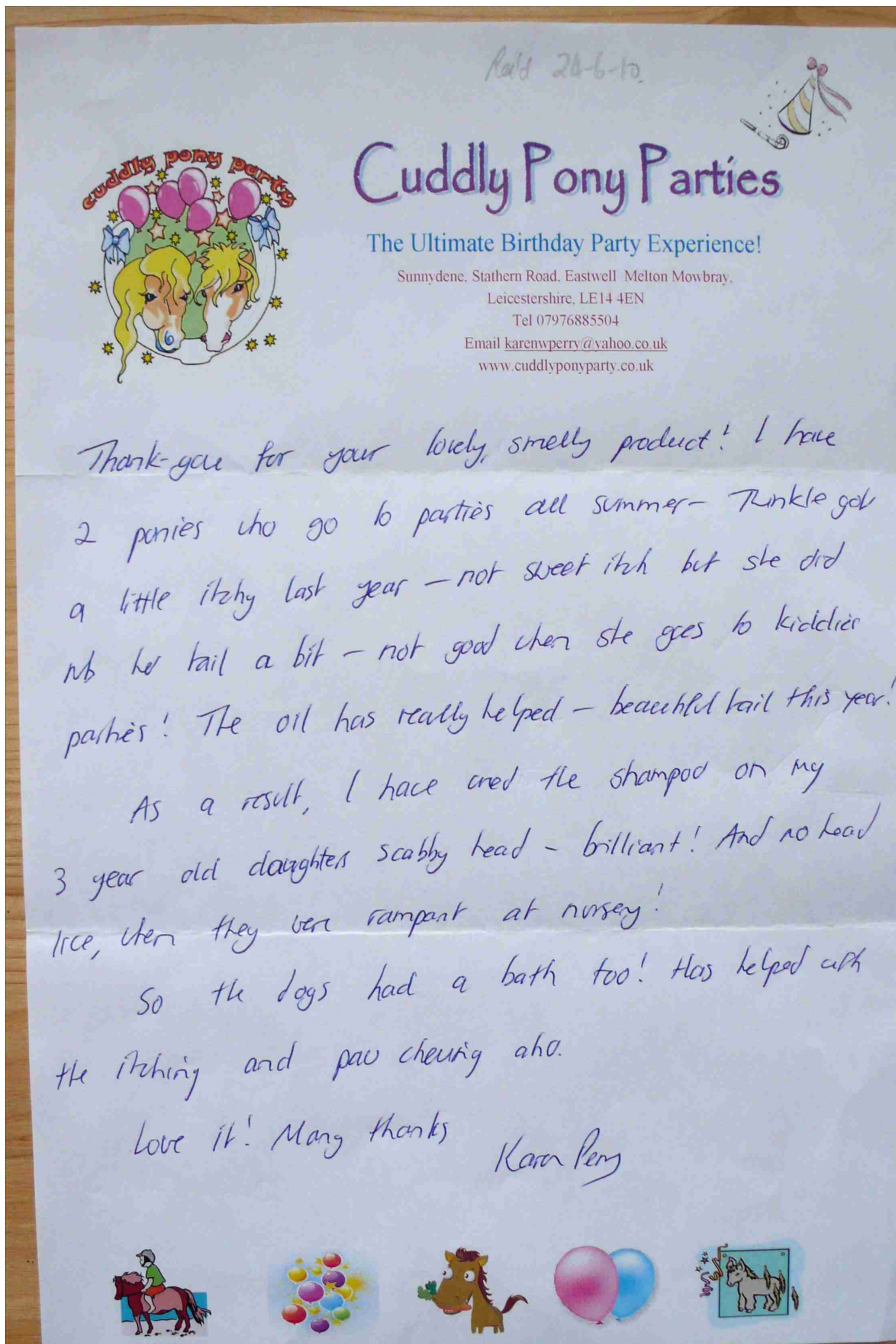 Rec'd 24-6-10.
cuddly pony party
Cuddly Pony Parties
The Ultimate Birthday Party Experience!
Sunnydene, Stathern Road, Eastwell Melton Mowbray,
Leicestershire, LE14 4EN
Tel 07976885504
Email karenwperry@yahoo.co.uk
www.cuddlyponyparty.co.uk
Thank-you for your lovely, smelly product! I have
2 ponies who go to parties all summer - Twinkle got
a little itchy last year - not sweet itch but she did
rub her tail a bit - not good when she goes to kiddies
parties! The oil has really helped - beautiful tail this year!
As a result, I have used the shampoo on my
3 year old daughters scabby head - brilliant! And no head
lice, when they were rampant at nursery!
So the dogs had a bath too! Has helped with
the itching and paw chewing also.
Love it! Many thanks
Karen Perry